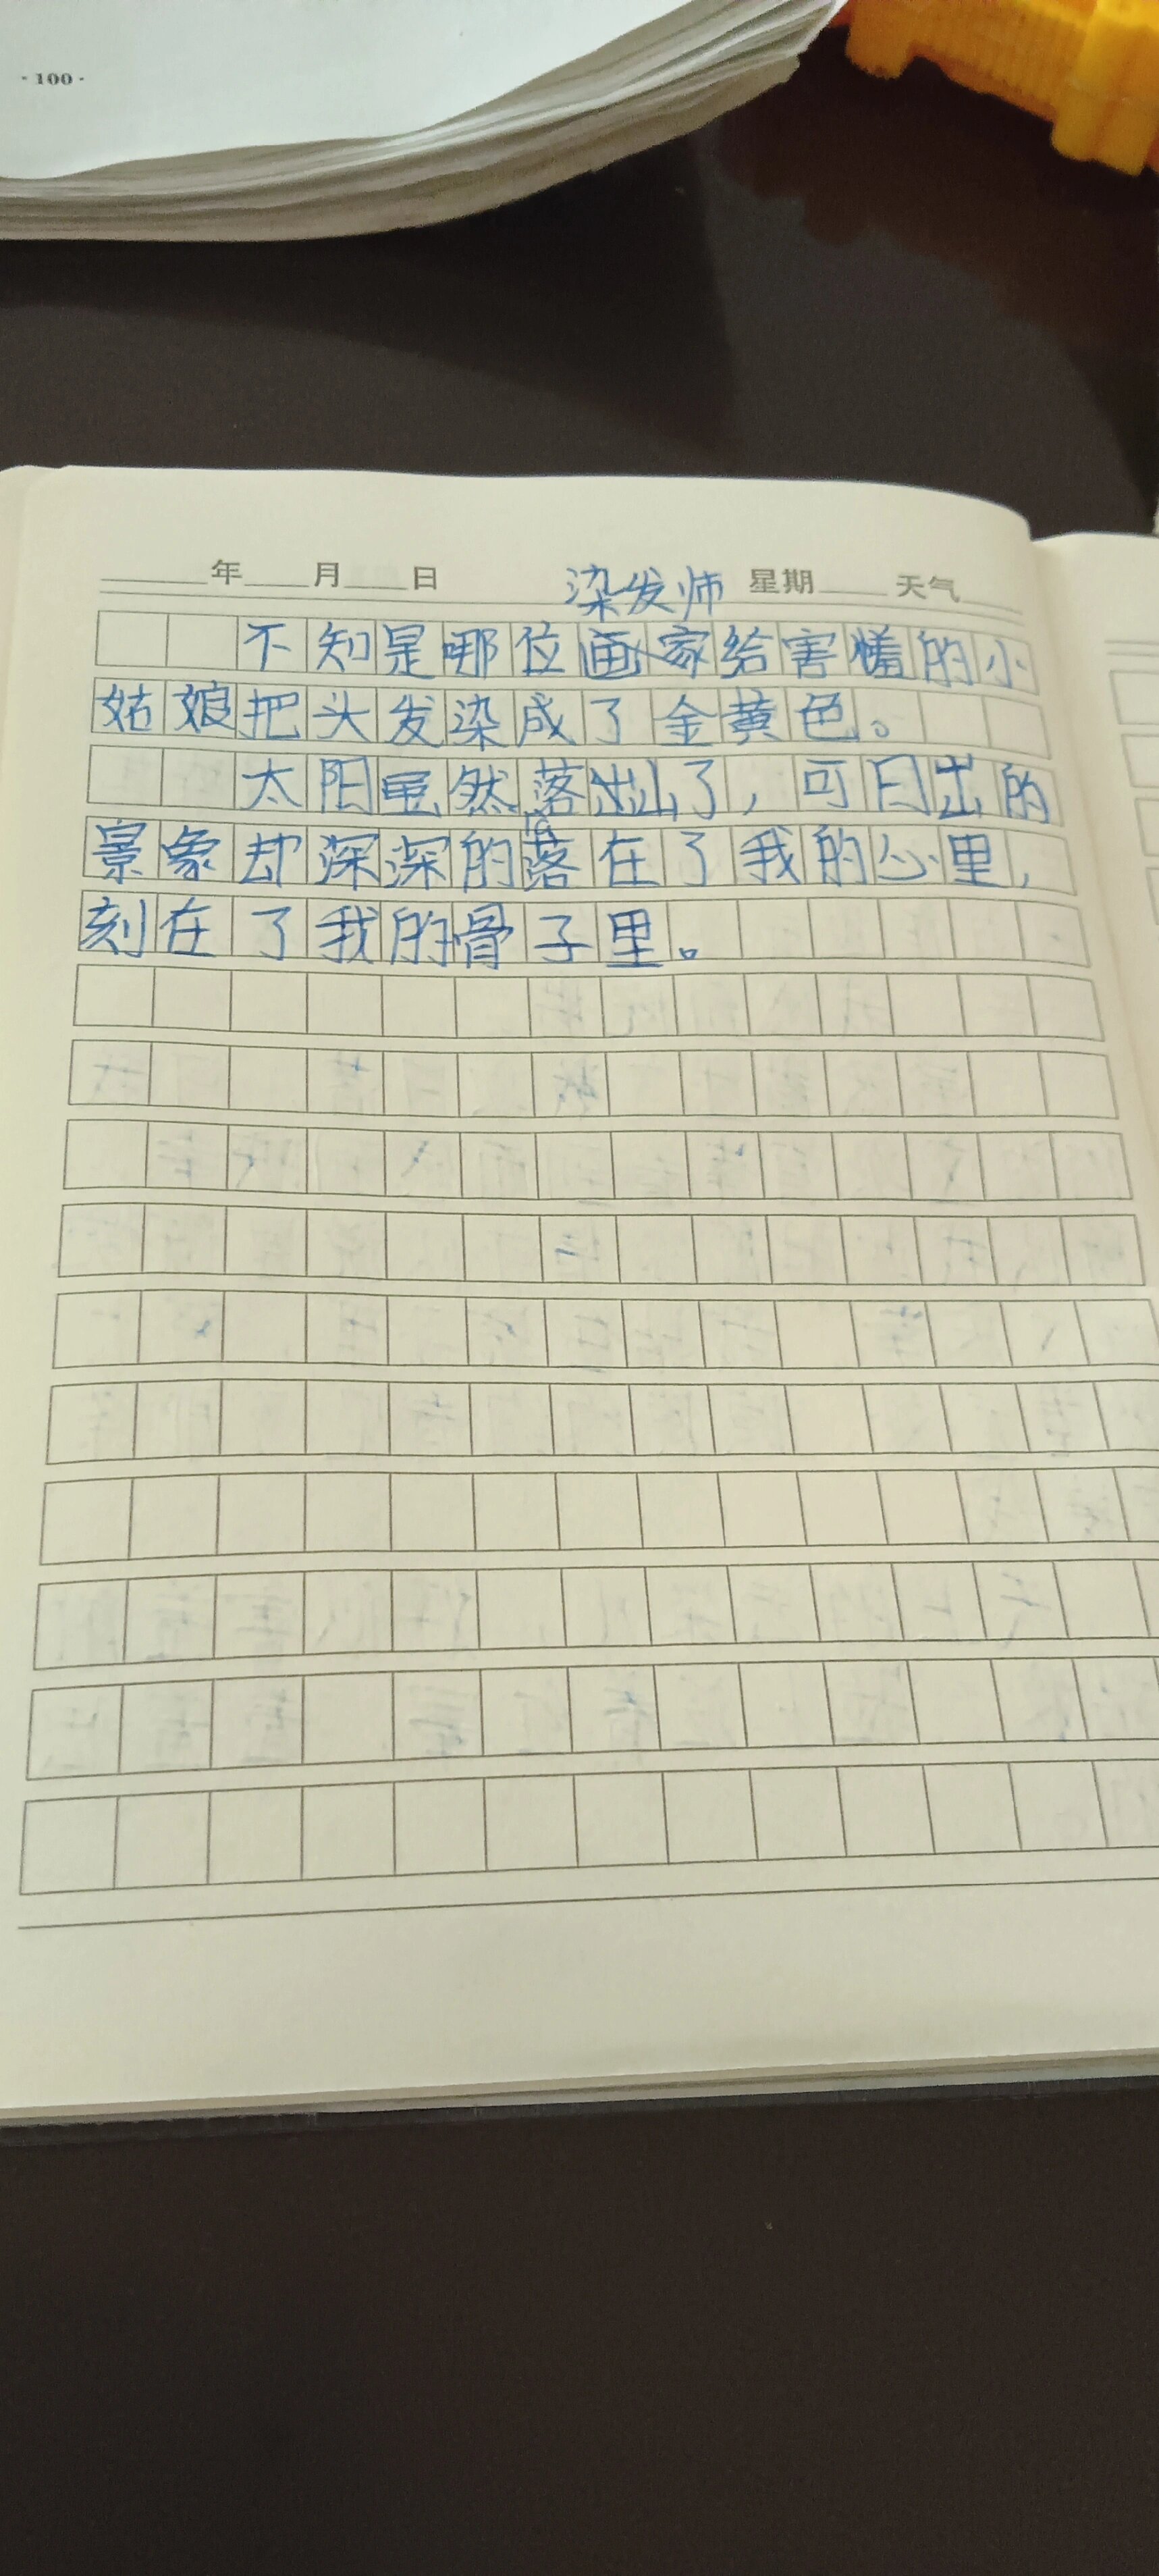 · 100 ·
年 月 日 染发师 星期 天气
不知是哪位画家给害羞的小
姑娘把头发染成了金黄色。
太阳虽然落出山了，可日出的
景象却深深的落在了我的心里，
刻在了我的骨子里。